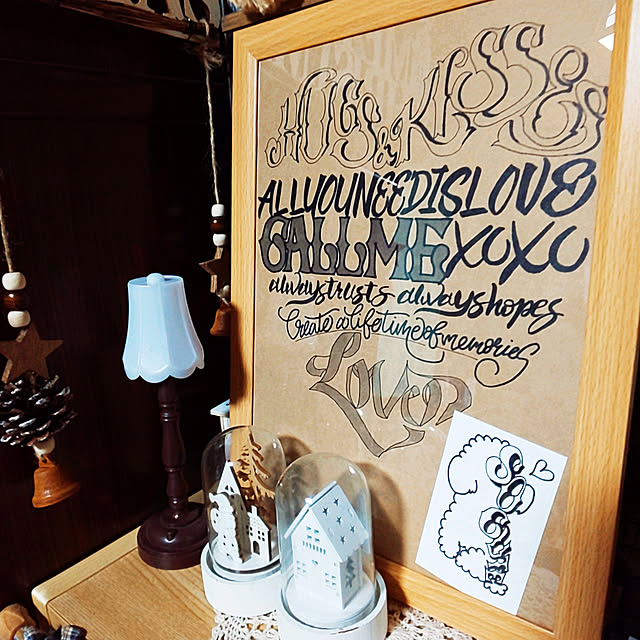 HUGS & KISSES
ALL YOU NEED IS LOVE
CALL ME XOXO
always trusts always hopes
Create a lifetime of memories
Love